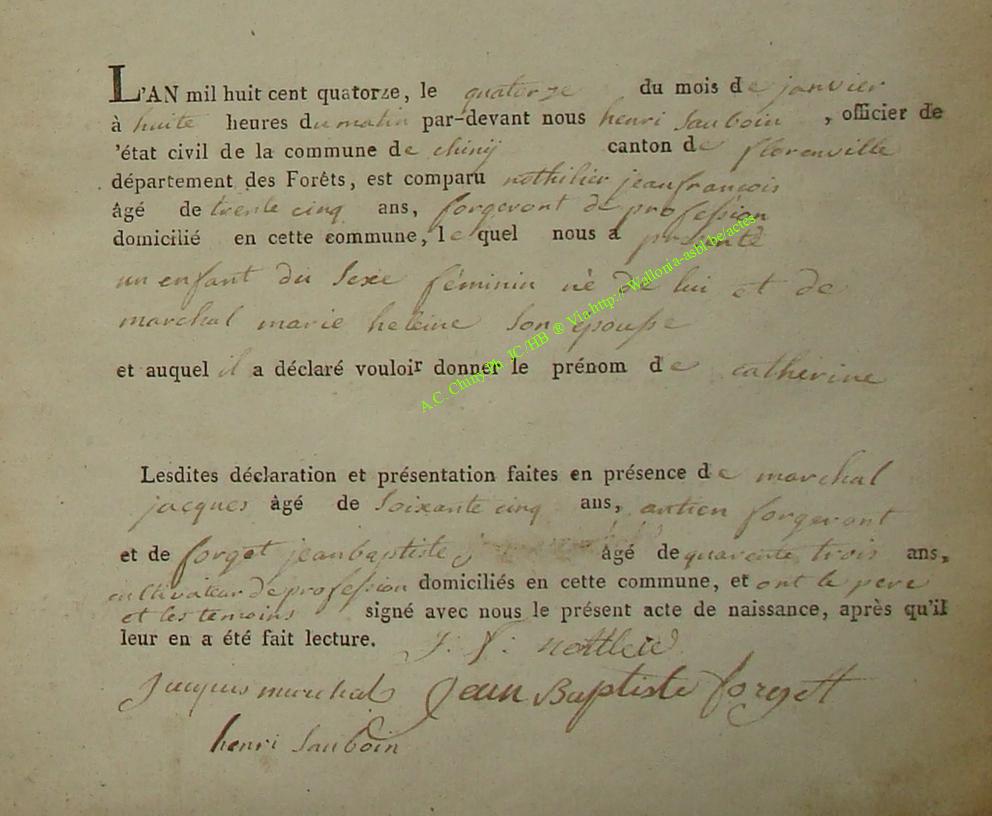 L'AN mil huit cent quatorze, le quatorze du mois de janvier
à huite heures du matin par-devant nous henri Sauboin , officier de
'état civil de la commune de chinÿ canton de florenville
département des Forêts, est comparu nothilier jeanfrancois
âgé de trente cinq ans, forgeront de profession
domicilié en cette commune, le quel nous a presenté
un enfant du Sexe féminin né de lui et de
marchal marie heleine Son epouse
et auquel il a déclaré vouloir donner le prénom de catherine
A.C. Chiny Ph. JC /HB ® Via http://Wallonia-asbl.be/actes
Lesdites déclaration et présentation faites en présence de marchal
jacques âgé de Soixante cinq ans, antien forgeront
et de forget jeanbaptiste âgé de quarente trois ans,
cultivateur de profession domiciliés en cette commune, et ont le pere
et les temoins signé avec nous le présent acte de naissance, après qu'il
leur en a été fait lecture. J. f.
jacques marchal Jean Baptiste forgett
henri Sauboin